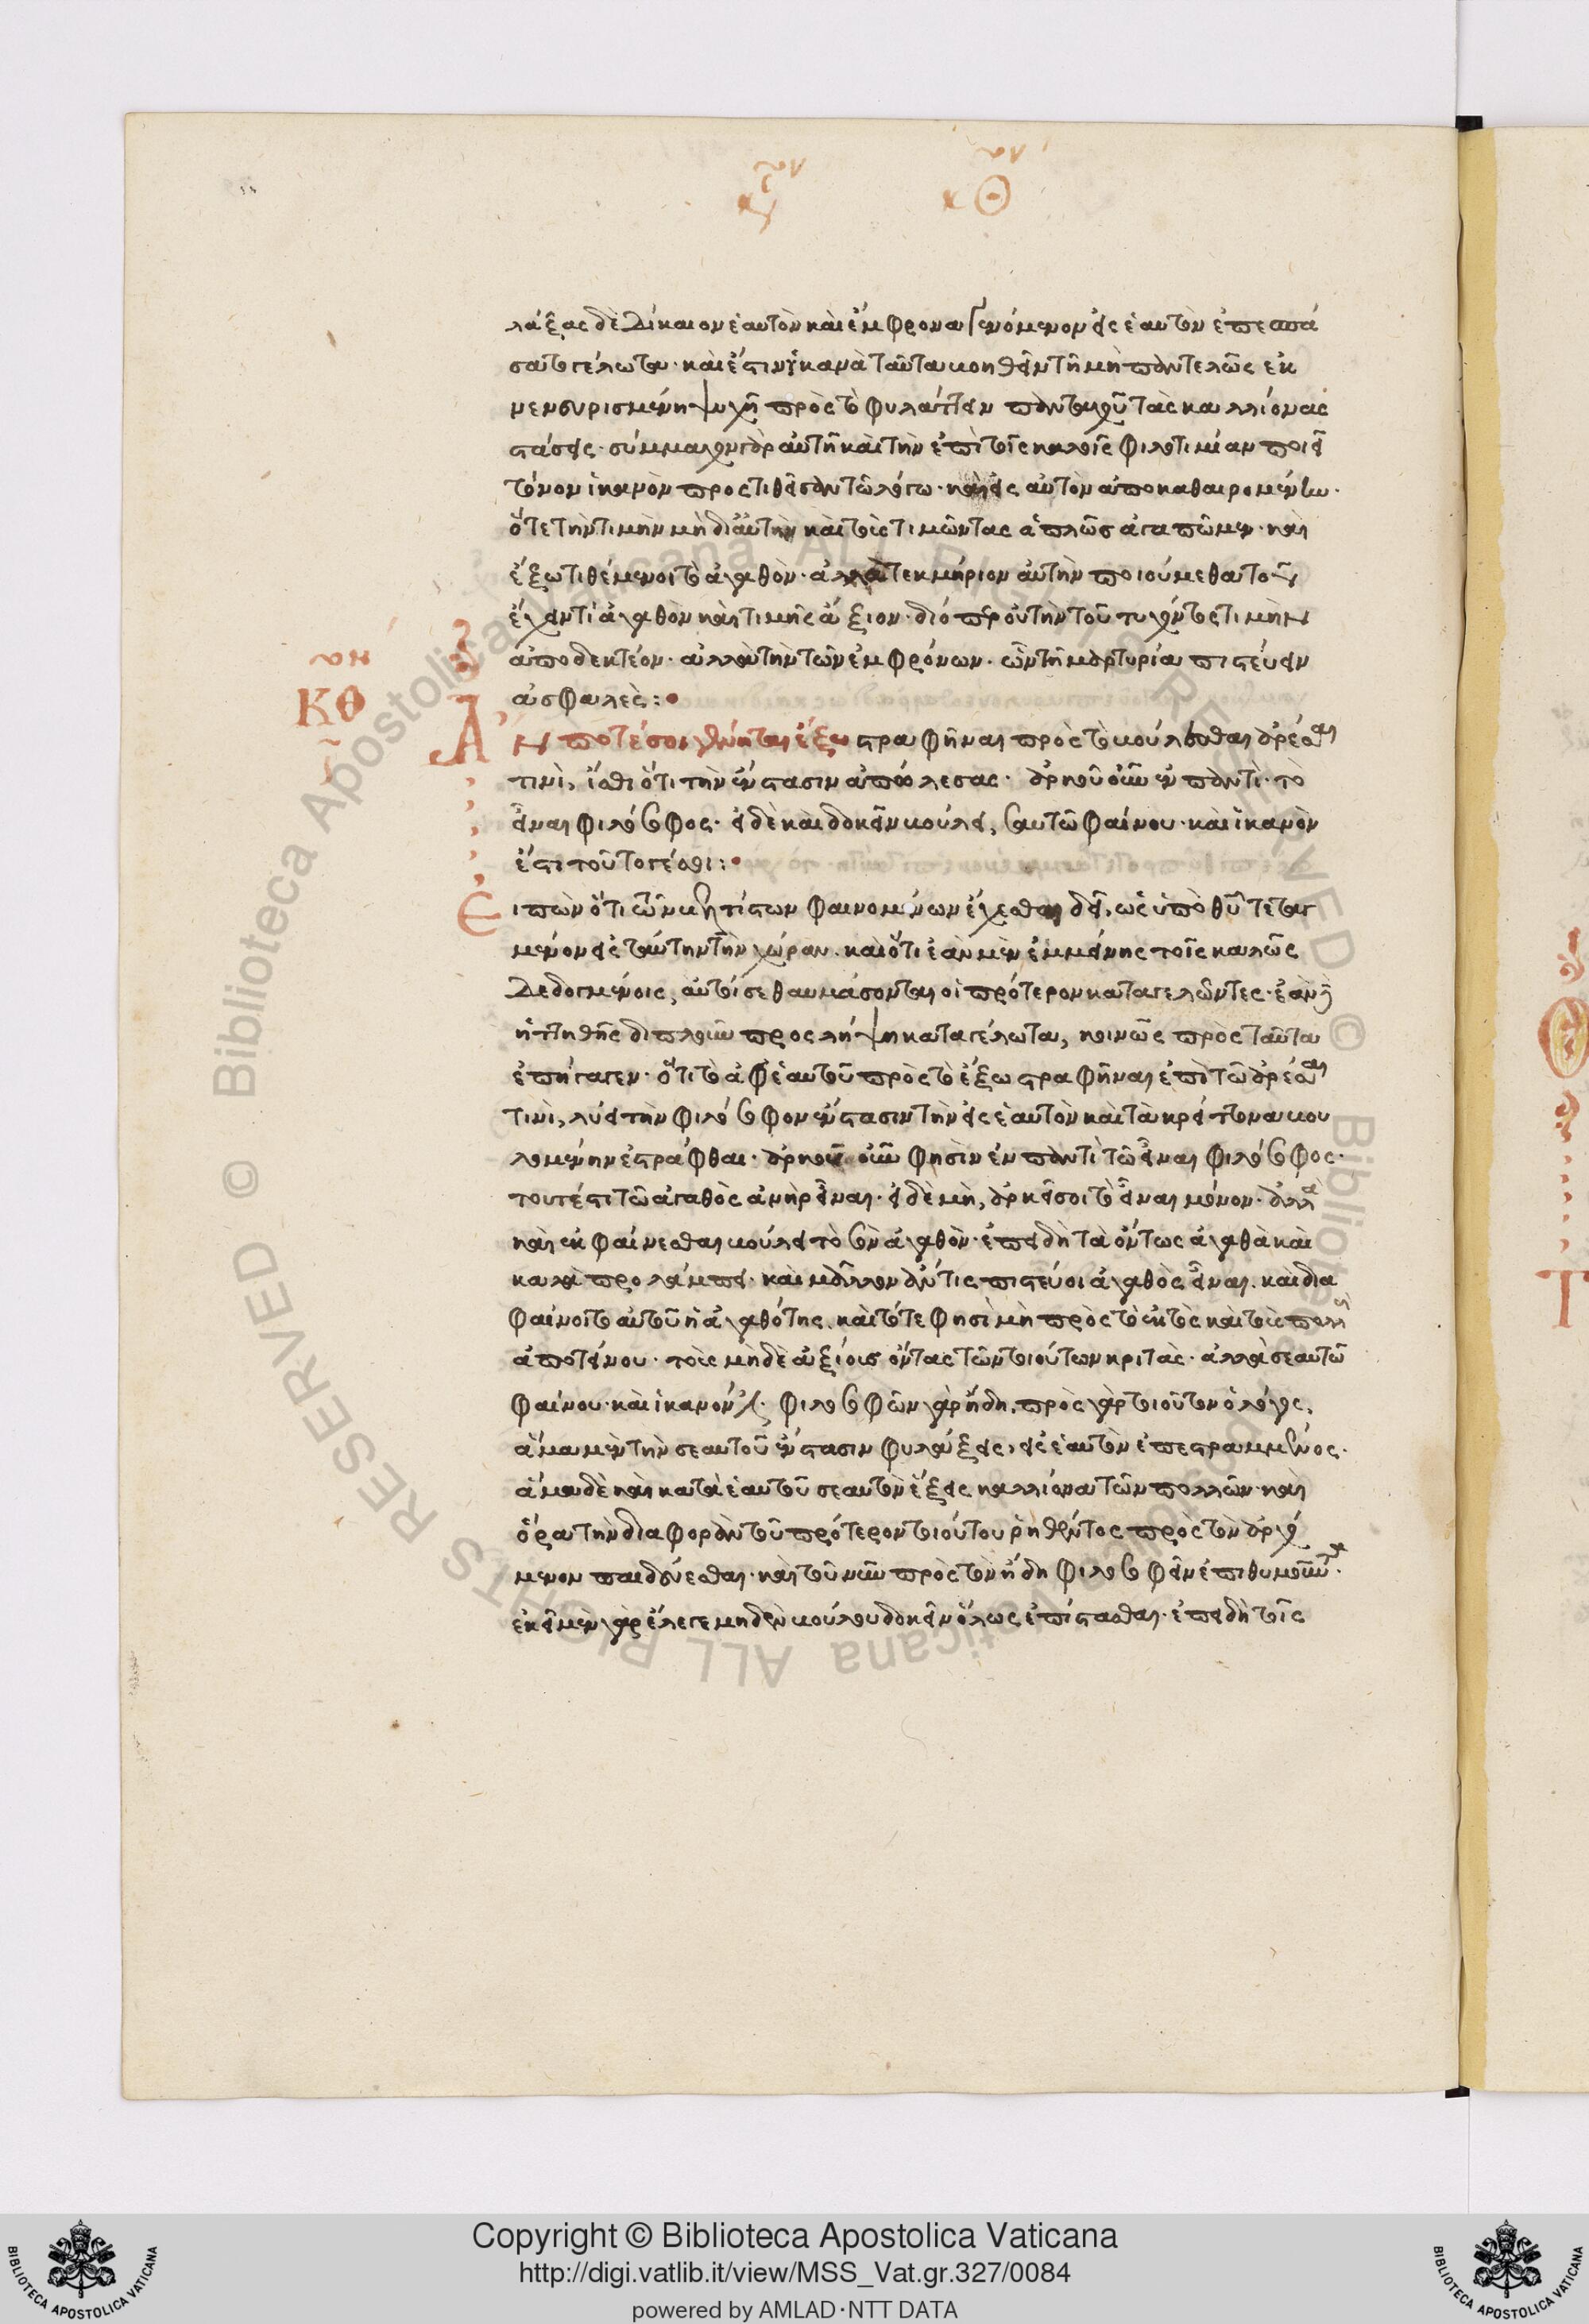 λάξας δὲ δίκαιον ἑαυτὸν καὶ ἔμφρονα γενόμενον εἰς ἑαυτὸν ἐπεσπά
σατο γέλωτα· καὶ ἔστιν ἱκανὰ ταῦτα βοηθεῖν τῆ μὴ παντελῶς ἐκ
νενευρισμένη ψυχῆ πρὸς τὸ φυλάττειν πανταχοῦ τὰς καλλίονας
στάσεις· σύμμαχον γὰρ αὐτῆ καὶ τὴν ἐπὶ τοῖς καλοῖς φιλοτιμίαν ποιεῖ
τόνον ἱκανὸν προστιθεῖσαν τῶ λόγω· καὶ εἰς αὐτὸν ἀποκαθαιρομένω·
ὅτε τὴν τιμὴν μὴ δι' αὐτὴν καὶ τοὺς τιμῶντας ἁπλῶς ἀγαπῶμεν· καὶ
ἔξω τιθέμενοι τὸ ἀγαθὸν· ἀλλὰ τεκμήριον αὐτὴν ποιούμεθα τοῦ
ἔχειν τὶ ἀγαθὸν καὶ τιμῆς ἄξιον· διόπερ οὐ τὴν τοῦ τυχόντος τιμὴν
ἀποδεκτέον· ἀλλὰ τὴν τῶν ἐμφρόνων· ὧν τῆ μαρτυρία πιστεύειν
ἀσφαλὲς:
ΚΘ
Ἄν ποτέ σοι γένηται ἔξω στραφῆναι πρὸς τὸ βούλεσθαι ἀρέσαι
τινὶ, ἴσθι ὅτι τὴν ἔνστασιν ἀπώλεσας· ἀρκοῦ οὖν ἐν παντὶ· τὸ
εἶναι φιλόσοφος· εἰ δὲ καὶ δοκεῖν βούλει, σαυτῶ φαίνου· καὶ ἱκανὸν
ἔστι τοῦτό γέ σοι:
Εἰπὼν ὅτι τῶν βελτίστων φαινομένων ἔχεσθαι δεῖ, ὡς ὑπὸ θεοῦ τεταγ
μένον εἰς ταύτην τὴν χώραν· καὶ ὅτι ἐὰν μὲν ἐμμείνης τοῖς καλῶς
δεδογμένοις, αὐτοί σε θαυμάσονται οἱ πρότερον καταγελῶντες· ἐὰν δὲ
ἡττηθῆς διπλοῦν προσλήψη κατάγέλωτα, κοινῶς πρὸς ταῦτα
ἐπήγαγεν· ὅτι τὸ ἀφ' ἑαυτοῦ πρὸς τὸ ἔξω στραφῆναι ἐπὶ τῶ ἀρέσαι
τινὶ, λύει τὴν φιλόσοφον ἔνστασιν τὴν εἰς ἑαυτὸν καὶ τὰ κρείττονα βου
λομένην ἐστράφθαι· ἀρκοῦ οὖν φησὶν ἐν παντὶ τῶ εἶναι φιλόσοφος·
τουτέστι τῶ ἀγαθὸς ἀνὴρ εἶναι· εἰ δὲ μὴ, ἀρκεῖ σοι τὸ εἶναι μόνον· ἀλλὰ
καὶ ἐκφαίνεσθαι βούλει τὸ σὸν ἀγαθὸν· ἐπειδὴ τὰ ὄντως ἀγαθὰ καὶ
καλὰ προλάμπει· καὶ μᾶλλον ἄν τις πιστεύοι ἀγαθὸς εἶναι· καὶ δια
φαίνοιτο αὐτοῦ ἡ ἀγαθότης· καὶ τότε φησὶ μὴ πρὸς τὸ ἐκτὸς καὶ τοὺς πολλοὺς
ἀποτείνου· τοὺς μηδὲ ἀξίους ὄντας τῶν τοιούτων κριτὰς· ἀλλὰ σεαυτῶ
φαίνου· καὶ ἱκανόν ἐστι· φιλοσοφῶν γὰρ ἤδη, πρὸς γὰρ τοιοῦτον ὁ λόγος,
ἅμα μὲν τὴν σεαυτοῦ ἔνστασιν φυλάξεις, εἰς ἑαυτὸν ἐπεστραμμένος·
ἅμα δὲ καὶ κατὰ ἑαυτοῦ σεαυτὸν ἕξεις καλλίονα τῶν πολλῶν· καὶ
ὅρα τὴν διαφορὰν τοῦ πρότερον τοιούτου ῥηθέντος πρὸς τὸν ἀρχό
μενον παιδεύεσθαι· καὶ τοῦ νῦν πρὸς τὸν ἤδη φιλοσοφεῖν ἐπιθυμοῦντα·
ἐκεῖ μὲν γὰρ ἔλεγε μηδὲν βούλου δοκεῖν ὅλως ἐπίστασθαι· ἐπειδὴ τοῖς
Copyright © Biblioteca Apostolica Vaticana
http://digi.vatlib.it/view/MSS_Vat.gr.327/0084
powered by AMLAD·NTT DATA
BIBLIOTECA APOSTOLICA VATICANA
BIBLIOTECA APOSTOLICA VATICANA
© Biblioteca Apostolica Vaticana ALL RIGHTS RESERVED © Biblioteca Apostolica Vaticana ALL RIGHTS RESERVED